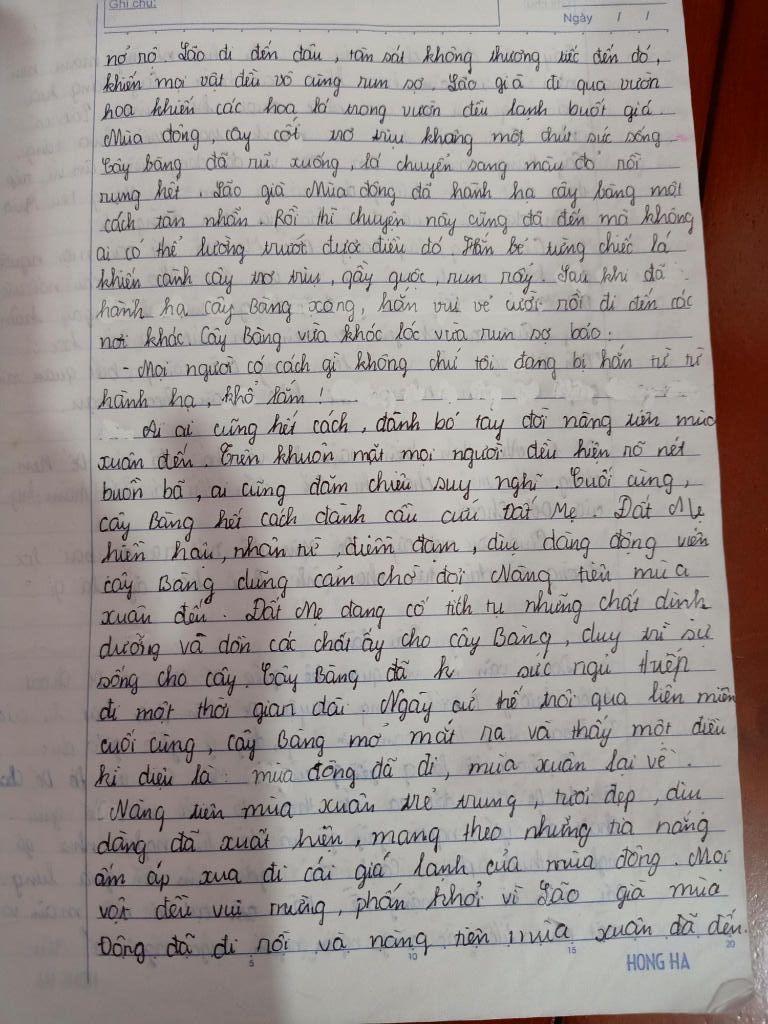 Ghi chú:
Ngày / /
nở rộ. Lão đi đến đâu, tàn sát không thương tiếc đến đó,
khiến mọi vật đều vô cùng run sợ. Lão già đi qua vườn
hoa khiến các hoa lá trong vườn đều lạnh buốt giá.
Mùa đông, cây cối trơ trụi không một chút sức sống.
Cây bàng đã rủ xuống, lá chuyển sang màu đỏ rồi
rụng hết. Lão già Mùa đông đã hành hạ cây bàng một
cách tàn nhẫn. Rồi thì chuyện này cũng đã đến mà không
ai có thể lường trước được điều đó. Hắn bẻ từng chiếc lá
khiến cành cây trơ trụi, gầy guộc, run rẩy. Sau khi đã
hành hạ cây Bàng xong, hắn vui vẻ cười rồi đi đến các
nơi khác. Cây Bàng vừa khóc lóc vừa run sợ bảo:
- Mọi người có cách gì không chứ tôi đang bị hắn từ từ
hành hạ, khổ lắm!
Ai ai cũng hết cách, đành bó tay đợi nàng tiên mùa
xuân đến. Trên khuôn mặt mọi người đều hiện rõ nét
buồn bã, ai cũng đăm chiêu suy nghĩ. Cuối cùng,
cây Bàng hết cách đành cầu cứu Đất Mẹ. Đất Mẹ
hiền hậu, nhân từ, điềm đạm, dịu dàng động viên
cây Bàng dũng cảm chờ đợi Nàng tiên mùa
xuân đến. Đất Mẹ đang cố tích tụ những chất dinh
dưỡng và dồn các chất ấy cho cây Bàng, duy trì sự
sống cho cây. Cây Bàng đã k sức ngủ thiếp
đi một thời gian dài. Ngày cứ thế trôi qua liên miên
cuối cùng, cây Bàng mở mắt ra và thấy một điều
kì diệu là: mùa đông đã đi, mùa xuân lại về.
Nàng tiên mùa xuân trẻ trung, tươi đẹp, dịu
dàng đã xuất hiện, mang theo những tia nắng
ấm áp xua đi cái giá lạnh của mùa đông. Mọi
vật đều vui mừng, phấn khởi vì Lão già mùa
Đông đã đi rồi và nàng tiên mùa xuân đã đến.
5 10 15 20
HONG HA